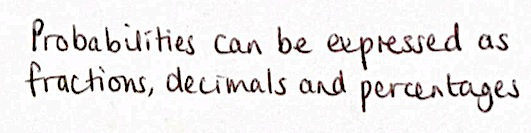 Probabilities can be expressed as
fractions, decimals and percentages